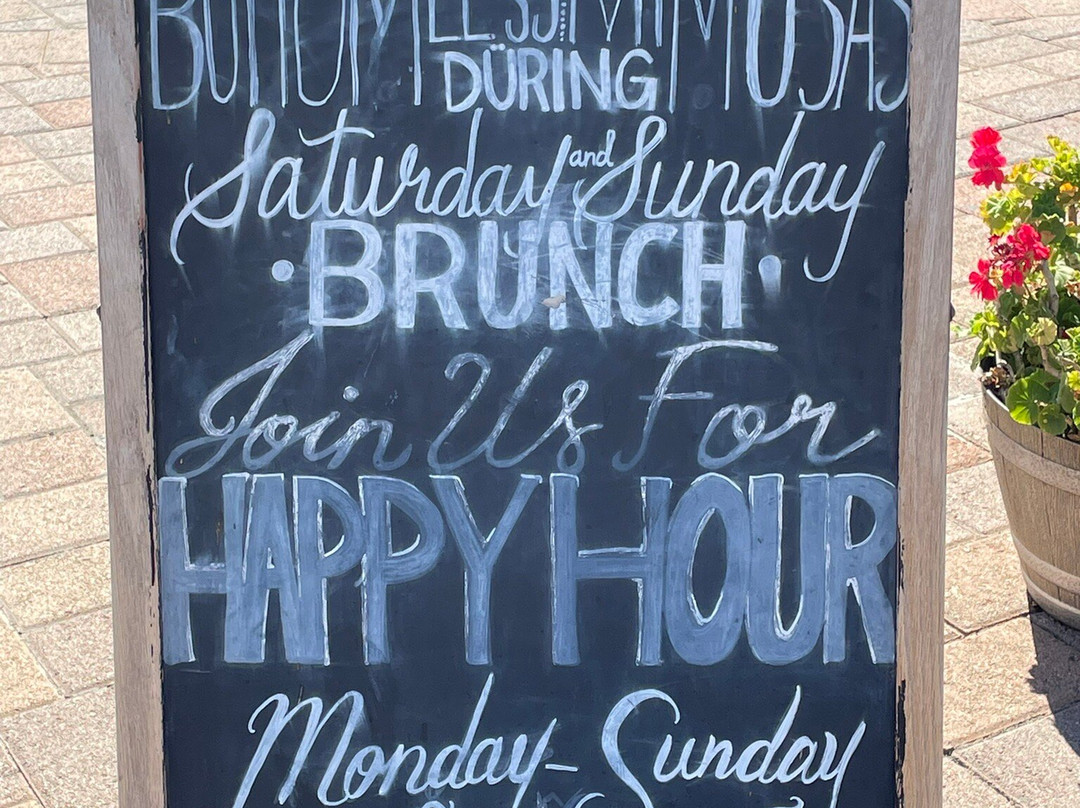 BOTTOMLESS MIMOSAS
DÜRING
Saturday and Sunday
• BRUNCH •
Join Us For
HAPPY HOUR
Monday - Sunday